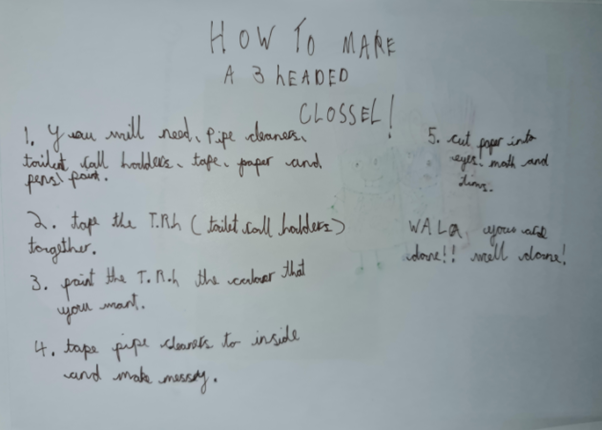 HOW TO MAKE
A 3 HEADED
CLOSSEL!
1. You will need, Pipe cleaners,
toilet rall holders, tape, paper and
pens/paint.
2. tape the T.R.h (toilet rall holders)
together.
3. paint the T.R.h the colour that
you want.
4. tape pipe cleaners to inside
and make messy.
5. cut paper into
eyes, moth and
WALA your are
done!! well done!